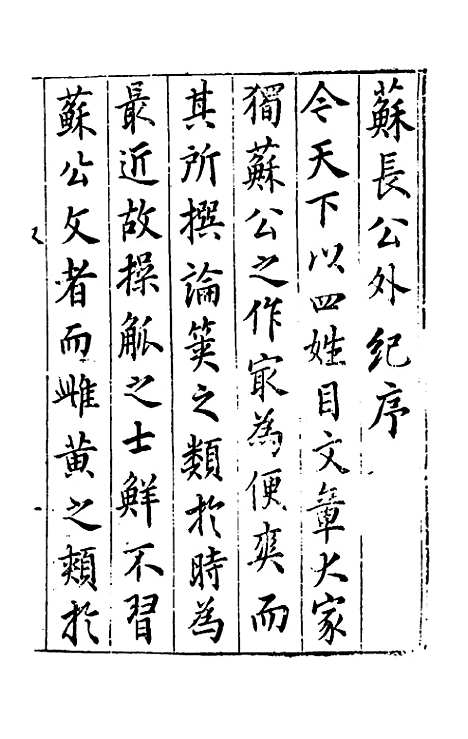 蘇長公外紀序
今天下以四姓目文章大家
獨蘇公之作冣為便爽而
其所撰論筴之類扵時為
最近故操觚之士鮮不習
蘇公文者而雌黄之頬扵